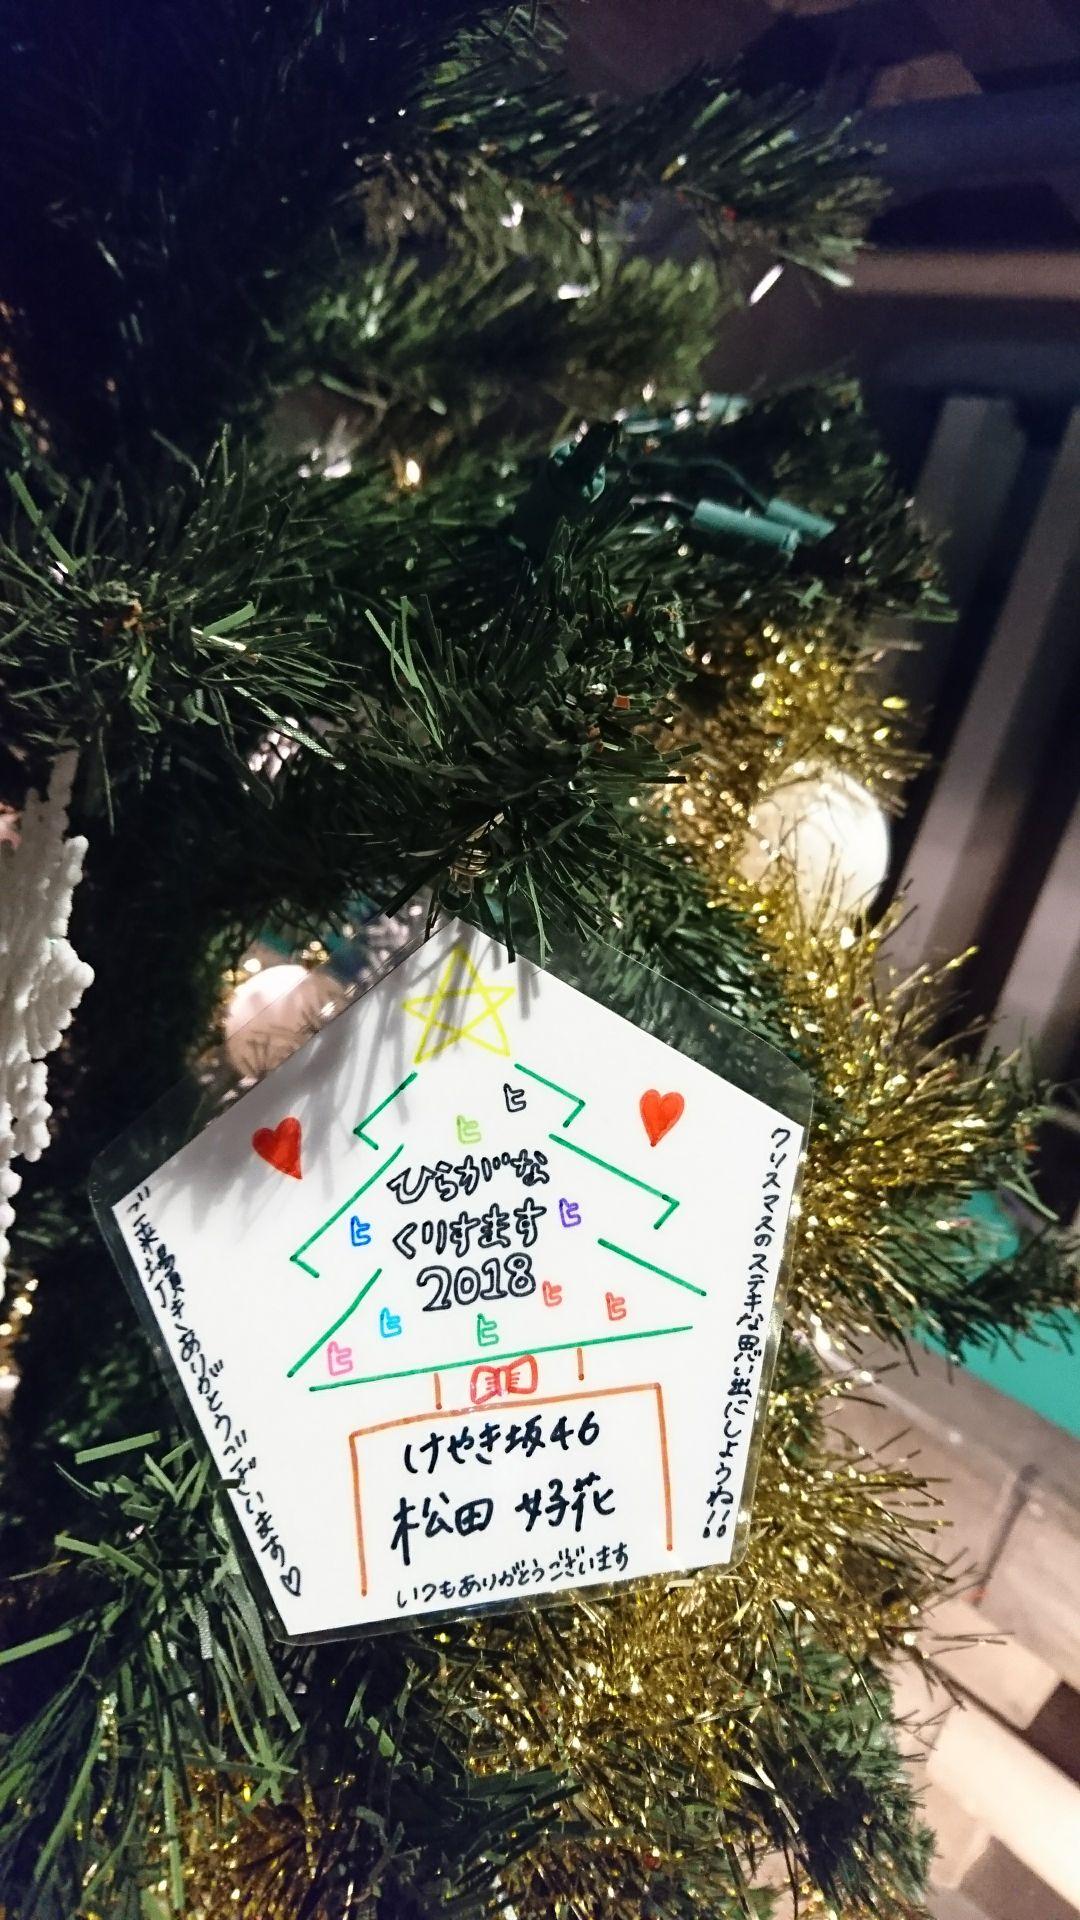 ヒ
ヒ
ひらがな
ヒ
くりすます
ヒ
2018
ヒ
ヒ
ヒ
ヒ
ヒ
けやき坂46
松田 好花
いつもありがとうございます
クリスマスのステキな思い出にしようね!!
ご来場頂きありがとうございます♡